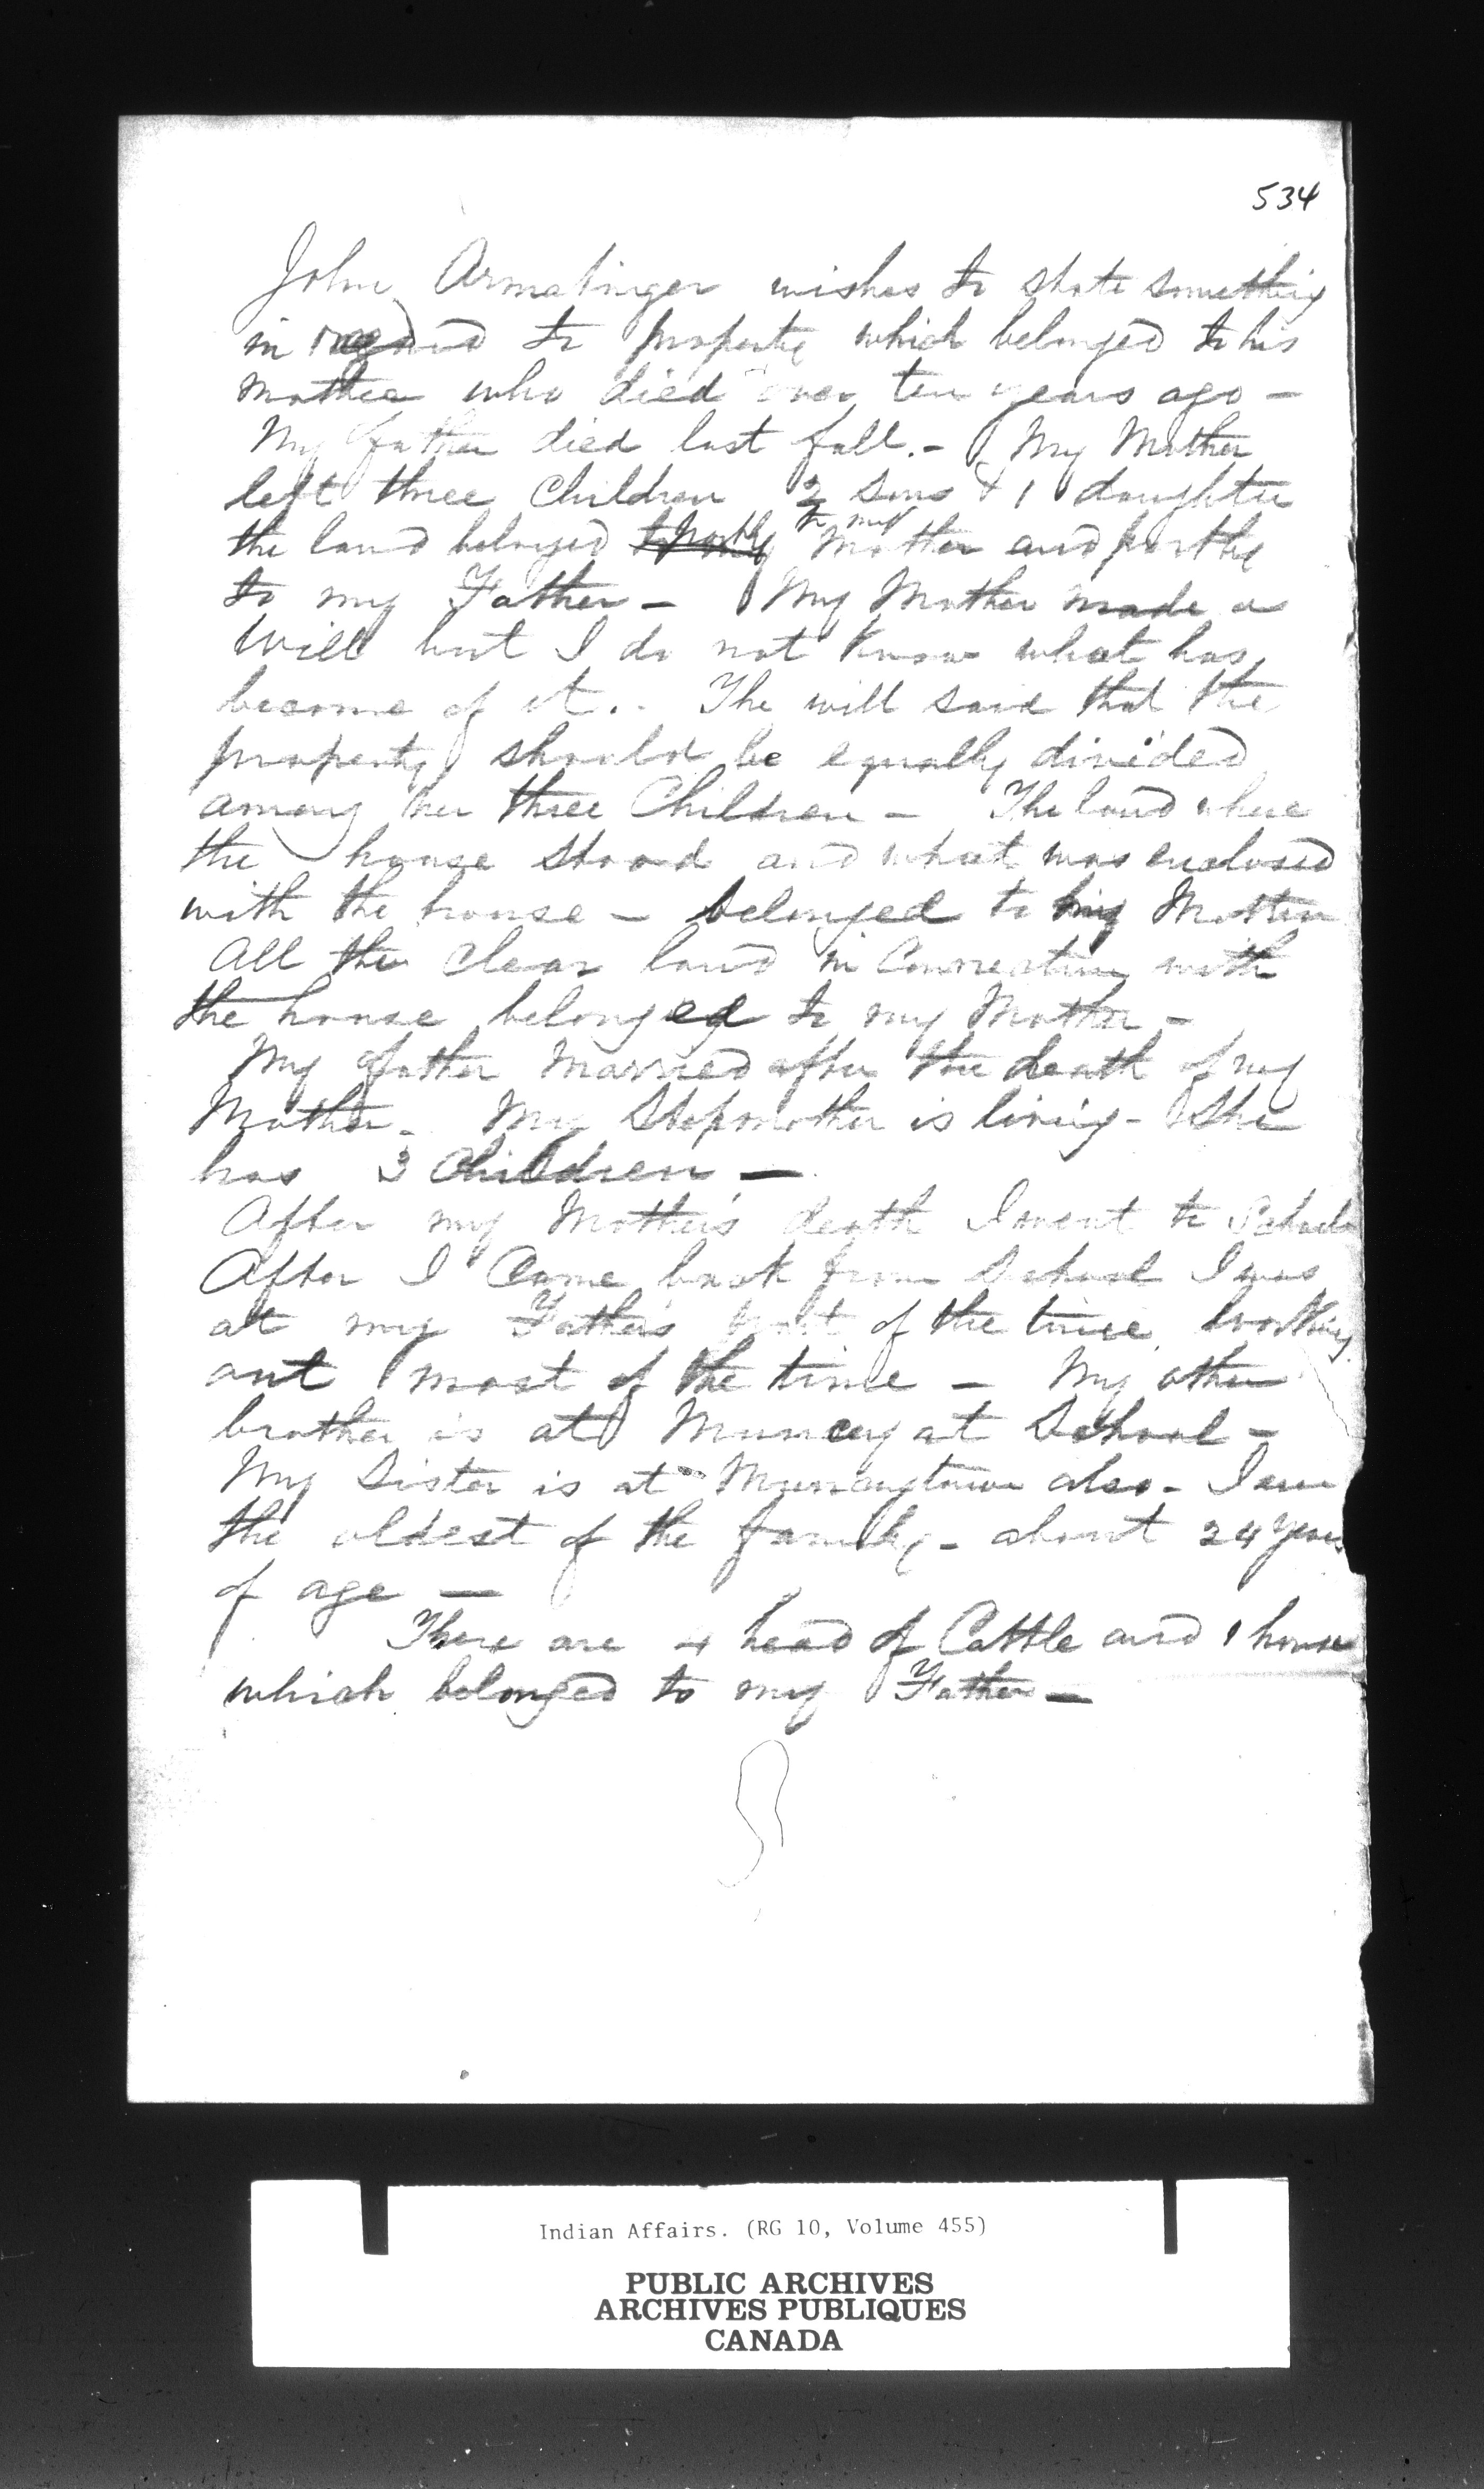 534
John Armatinger wishes to state something
in regard to property which belonged to his
mother who died over ten years ago -
My father died last fall. - My Mother
left three Children 2 sons & 1 daughter
to my
the land belonged to partly Mother and partly
to my Father - My Mother made a
Will but I do not know what has
become of it. . The will said that the
property should be equally divided
among her three Children - The land where
the house stood and what was enclosed
with the house - belonged to my Mother
All the clear land in Connection with
the house belonged to my Mother -
My father Married after the death of my
Mother - My Stepmother is living - She
has 3 Children -
After my Mother's death I went to School
After I Came back from School I was
at my Father's part of the time working
out most of the time - My other
brother is at Muncey at School -
My Sister is at Munceytown also - I am
the oldest of the family - about 24 years
of age -
There are 4 head of Cattle and 1 horse
which belonged to my Father -
Indian Affairs. (RG 10, Volume 455)
PUBLIC ARCHIVES
ARCHIVES PUBLIQUES
CANADA